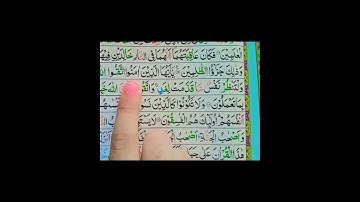 الْعٰلَمِيْنَ فَكَانَ عَاقِبَتَهُمَا اَنَّهُمَا فِي النَّارِ خَالِدَيْنِ فِيْهَا
وَذٰلِكَ جَزٰٓؤُا الظّٰلِمِيْنَ يٰٓاَيُّهَا الَّذِيْنَ اٰمَنُوا اتَّقُوا
وَلْتَنْظُرْ نَفْسٌ مَّا قَدَّمَتْ لِغَدٍ وَاتَّقُوا اللّٰهَ
بِمَا تَعْمَلُوْنَ وَلَا تَكُوْنُوْا كَالَّذِيْنَ نَسُوا
اَنْفُسَهُمْ اُولٰٓئِكَ هُمُ الْفٰسِقُوْنَ لَا يَسْتَوِيْٓ
وَاَصْحٰبُ الْجَنَّةِ اَصْحٰبُ
هٰذَا الْقُرْاٰنَ عَلٰى جَبَلٍ